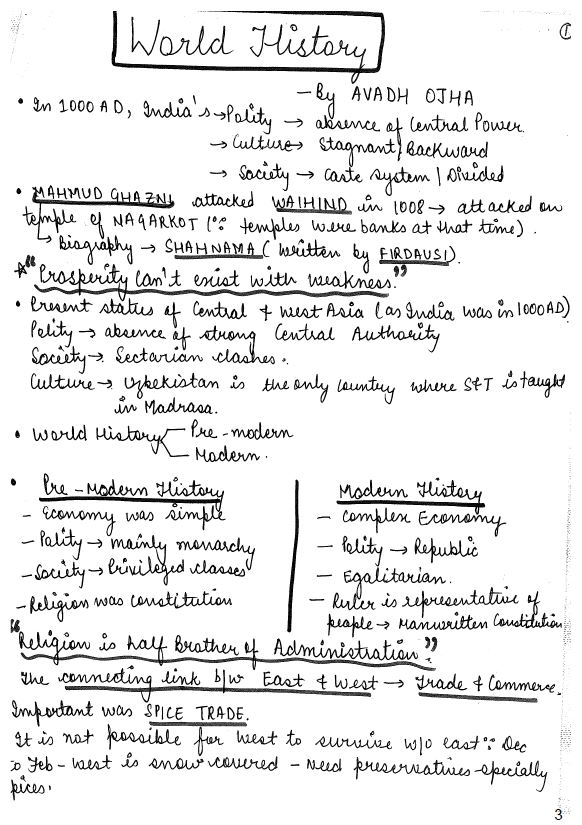 World History
①
- By AVADH OJHA
• In 1000 AD, India's → Polity → absence of Central Power.
→ Culture → Stagnant/Backward
→ Society → Caste system / Divided
• MAHMUD GHAZNI attacked WAIHIND in 1008 → attacked on
temple of NAGARKOT (∵ temples were banks at that time).
↳ Biography → SHAHNAMA (written by FIRDAUSI).
☆ "Prosperity can't exist with weakness."
• Present status of Central & West Asia (as India was in 1000 AD)
Polity → absence of strong Central Authority
Society → Sectarian clashes.
Culture → Uzbekistan is the only country where S&T is taught
in Madrasa.
• World History Pre-modern
Modern.
• Pre-Modern History
- Economy was simple
- Polity → mainly monarchy
- Society → Privileged classes
- Religion was constitution
Modern History
- Complex Economy
- Polity → Republic
- Egalitarian.
- Ruler is representative of
people → Manuwritten Constitution
"Religion is half Brother of Administration".
The connecting link b/w East & West → Trade & Commerce.
Important was SPICE TRADE.
It is not possible for West to survive w/o east ∵ Dec
to Feb - West is snow covered - Need preservatives - specially
pices.
3